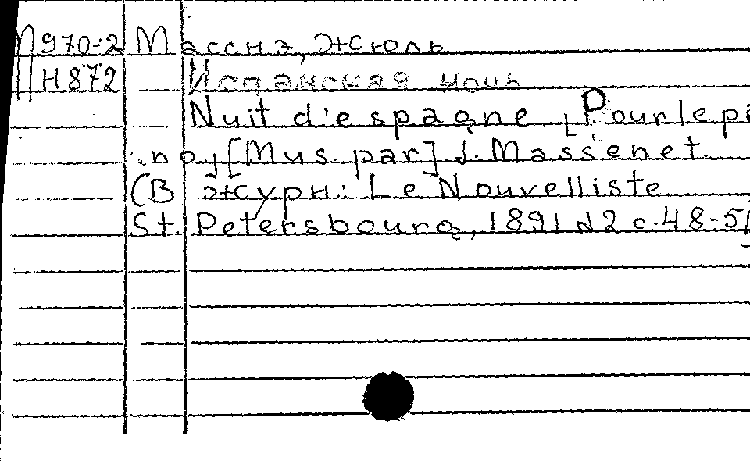 П970-2 Массна, Жюль
Н872 Испанская ночь
Nuit d'espagne [Pour le pi
ano] [Mus. par] J. Massenet
(В журн: Le Nouvelliste
St. Petersbourg, 1891 d2 c.48-51